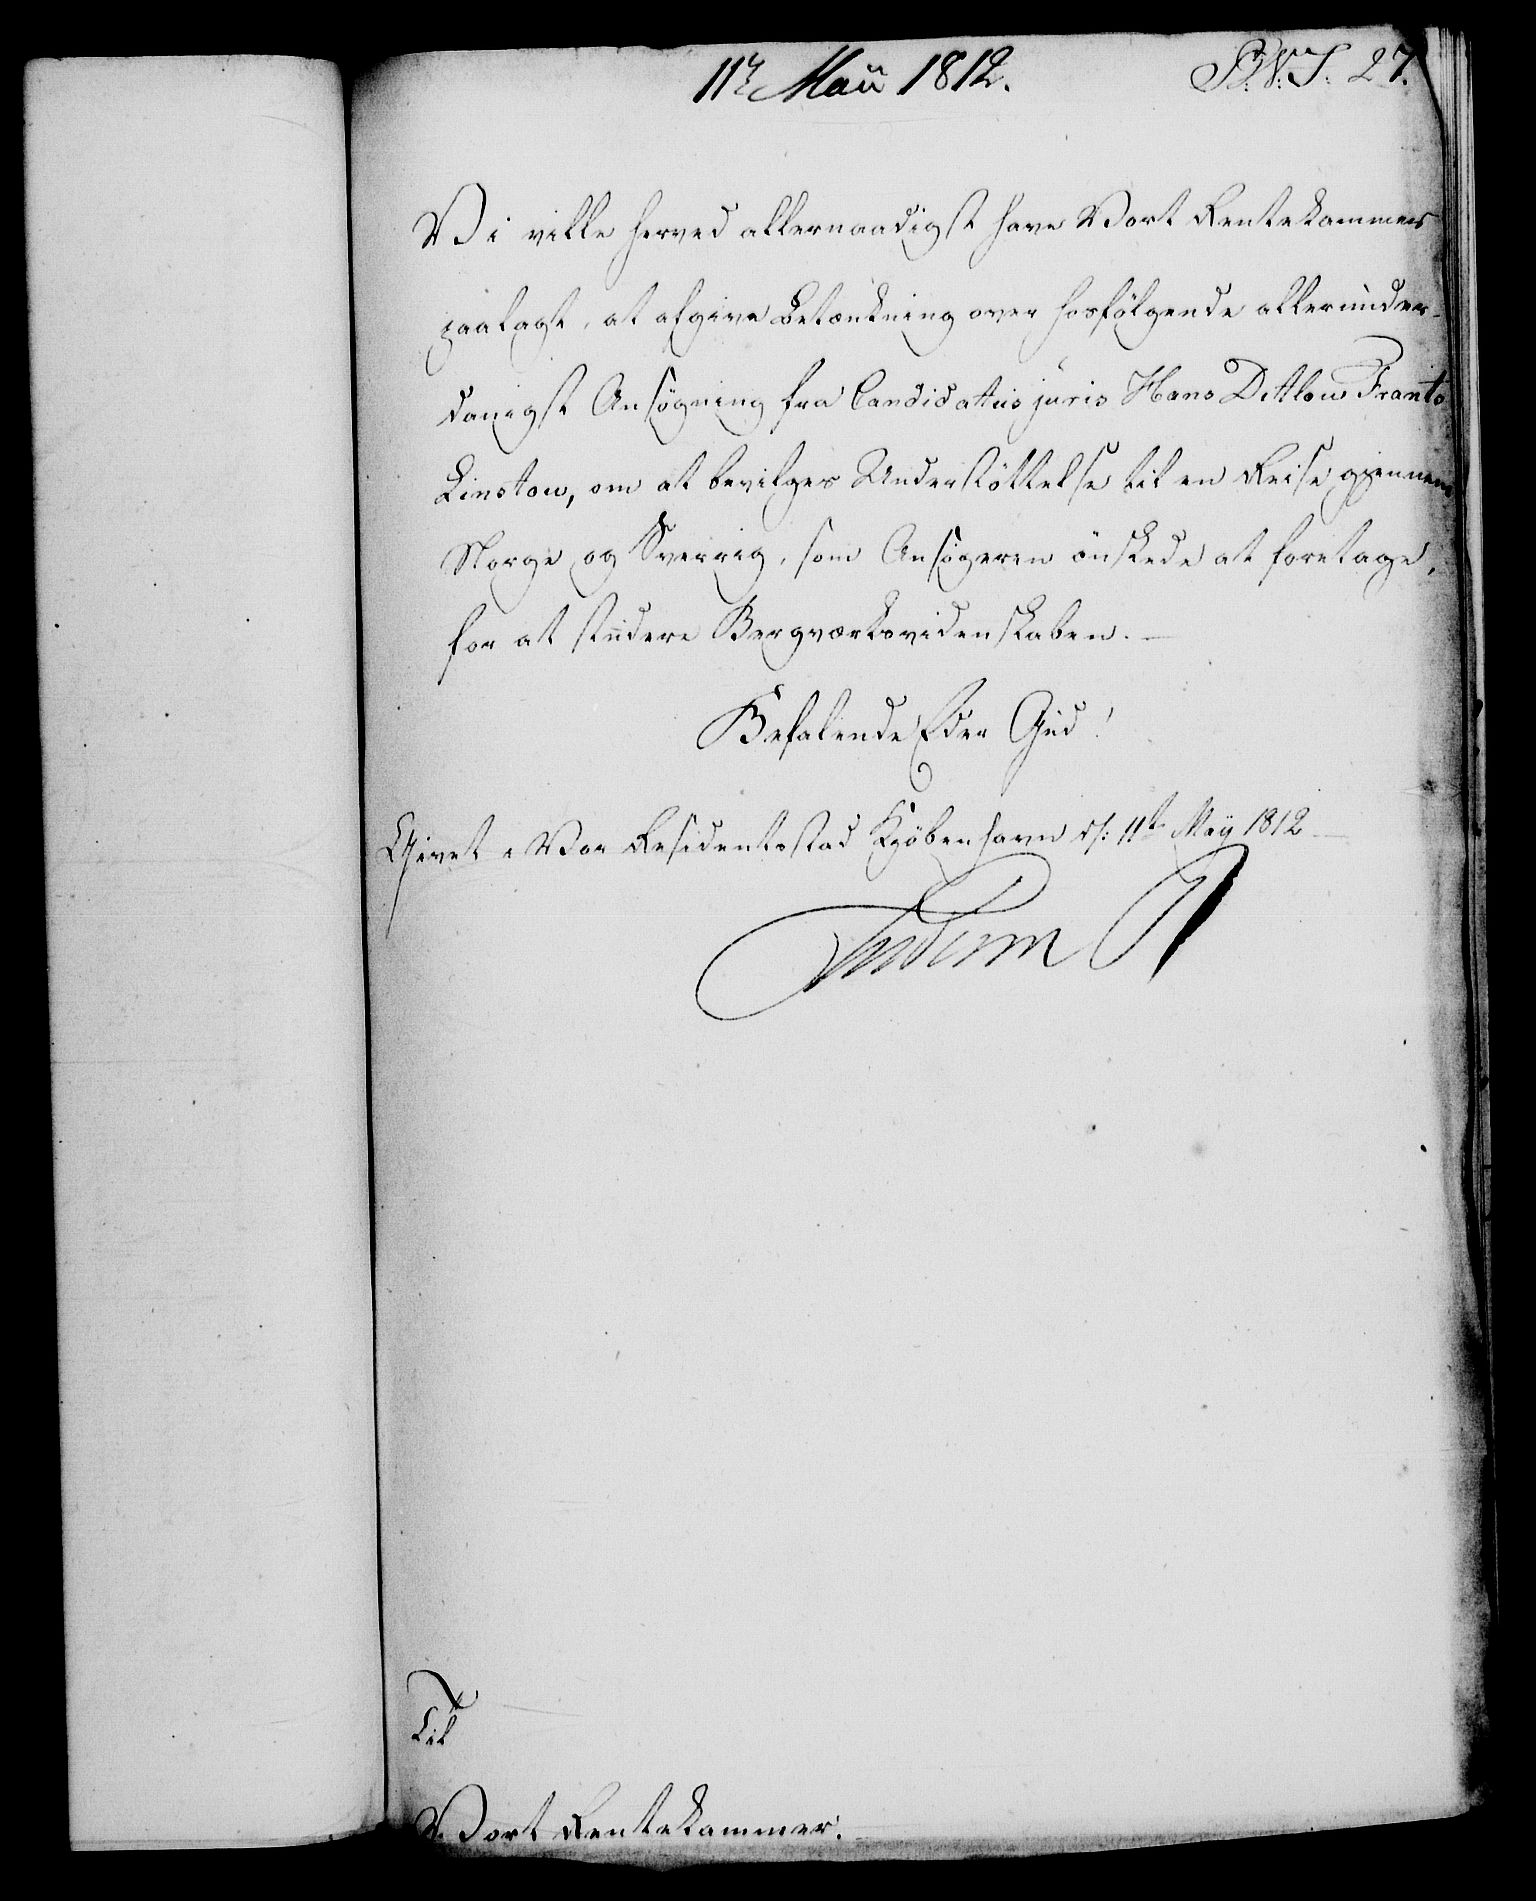 11te Maii 1812.
27.
Vi ville herved allernaadigst have Vort Rentekammer
paalagt, at afgive Betænkning over hosfölgende allerunder-
danigst Ansögning fra Candidatus juris Hans Ditlow Frants
Linstow, om at bevilges Understöttelse til en Reise gjennem
Norge og Sverrig, som Ansögeren önskede at foretage,
for at studere Bergværksvidenskaben.
Befalende Eder Gud!
Givet i Vor Residentsstad Kjöbenhavn d: 11te May 1812
Frederik R
Til
Vort Rentekammer.